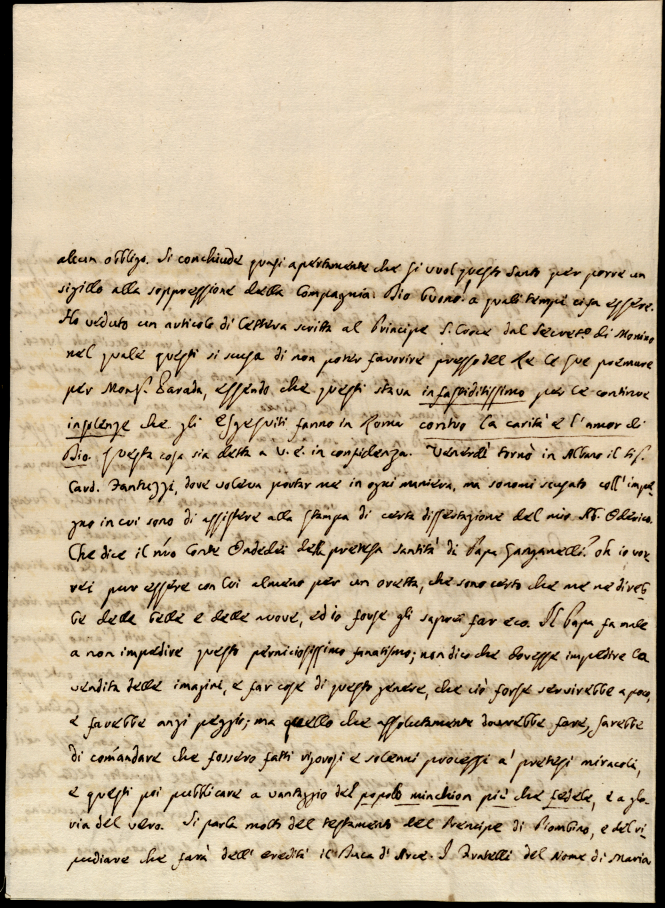 alcun obbligo. Si conchiude quasi apertamente che si vuol questo Santo per porre un
sigillo alla soppressione della Compagnia. Dio buono! a quali tempi essere.
Ho veduto un articolo di Lettera scritta al Principe S. Croce dal Secret.o di Monino
nel quale questi si scusa di non poter favorire presso del Re le sue premure
per Mons.r Parada, essendo che questi stava infastiditissimo per le continue
insolenze che gli Esgesuiti fanno in Roma contro la carità e l'amor di
Dio. Questa cosa sia detta a V. E. in confidenza. Venerdì tornò in Albano il Sig.
Card. Fantuzzi, dove voleva portarme in ogni maniera, ma sonomi scusato coll'impe-
gno in cui sono di assistere alla stampa di certa dissertazione del mio Ab. Oderico.
Che dice il nro Conte Ondedei della pretesa santità di Papa Ganganelli? oh io vor-
rei pur essere con lui almeno per un oretta, che sono certo che me ne direb-
be delle belle e delle nuove, ed io forse gli saprei far eco. Il Papa fa male
a non impedire questo perniciosissimo fanatismo; non dico che dovesse impedire la
vendita delle imagini, e far cose di questo genere, che ciò forse servirebbe a poco,
e farebbe anzi peggio; ma quello che assolutamente dovrebbe fare, sarebbe
di comandare che fossero fatti rigorosi e solenni processi a' pretesi miracoli,
e questi poi pubblicare a vantaggio del popolo minchion più che fedele, e a glo-
ria del vero. Si parla molto del testamento del Principe di Piombino, e del ri-
pudiare che farà dell'eredità il Duca d'Arce. I Fratelli del Nome di Maria